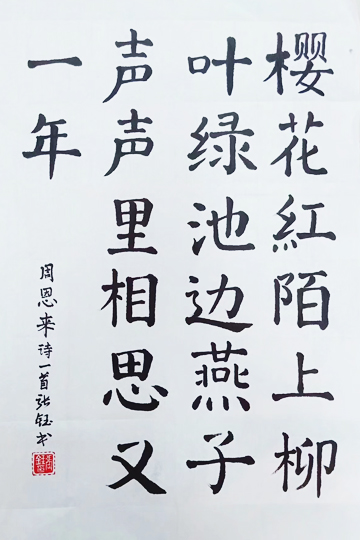 樱花紅陌上柳
叶绿池边燕子
声声里相思又
一年
周恩来诗一首张钰书